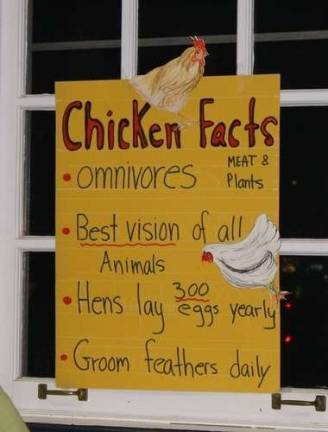 Chicken Facts
• omnivores MEAT &
Plants
• Best vision of all
Animals
• Hens lay 300
eggs yearly
• Groom feathers daily